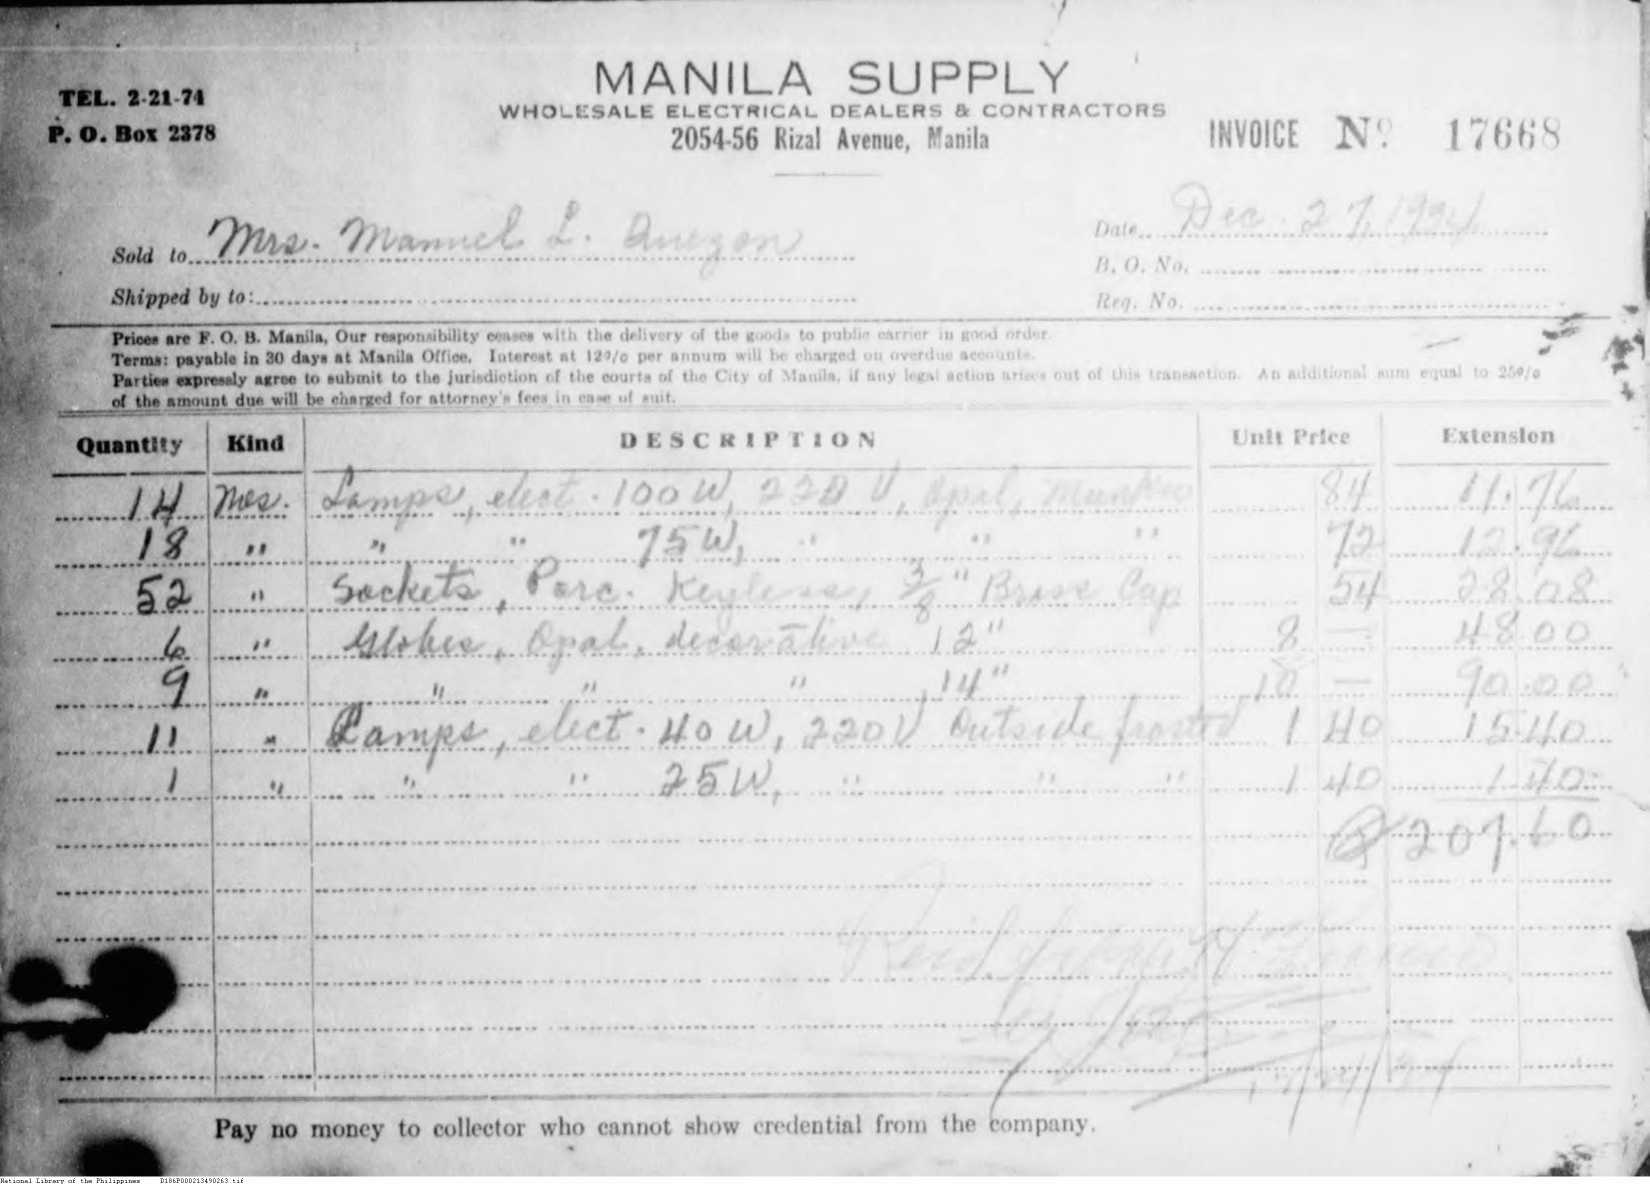 MANILA SUPPLY
TEL. 2-21-74
WHOLESALE ELECTRICAL DEALERS & CONTRACTORS
P. O. Box 2378
2054-56 Rizal Avenue, Manila
INVOICE Nº 17668
Sold to Mrs. Manuel L. Quezon
Date Dec. 27, 1934
B. O. No.
Shipped by to:
Req. No.
Prices are F. O. B. Manila, Our responsibility ceases with the delivery of the goods to public carrier in good order.
Terms: payable in 30 days at Manila Office. Interest at 12o/o per annum will be charged on overdue accounts.
Parties expressly agree to submit to the jurisdiction of the courts of the City of Manila, if any legal action arises out of this transaction. An additional sum equal to 25o/o
of the amount due will be charged for attorney's fees in case of suit.
Quantity Kind DESCRIPTION Unit Price Extension
14 Nos. Lamps, elect. 100 W, 220 V, Opal, 84 11.76
18 " " " 75 W, " " " 72 12.96
52 " Sockets, Porc. Keyless, 3/8" Brass Cap 54 28.08
6 " Globes, Opal, decorative 12" 8 — 48.00
9 " " " " , 14" 10 — 90.00
11 " Lamps, elect. 40 W, 220 V Outside frosted 1 40 15.40
1 " " " 25 W, " " " 1 40 1.40
₱ 207.60
Pay no money to collector who cannot show credential from the company.
National Library of the Philippines D186P000213490263.tif